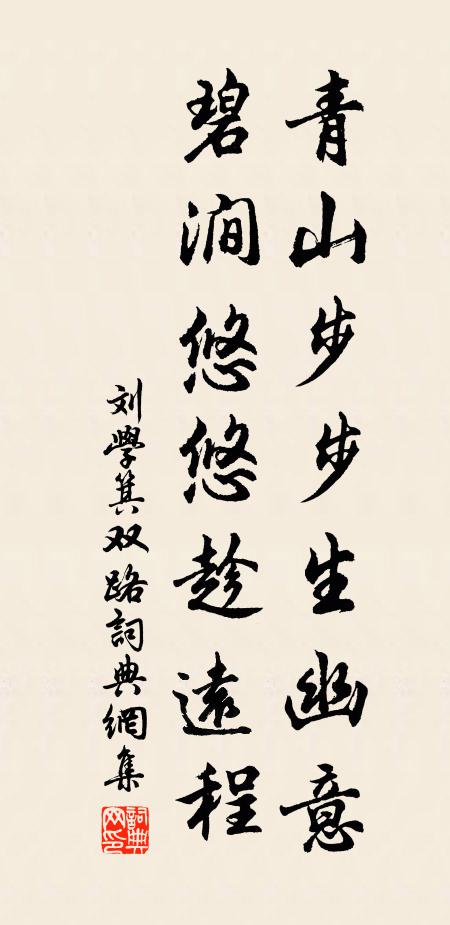 青山步步生幽意
碧澗悠悠趁遠程
刘學箕双路詞典網集
詞典网印